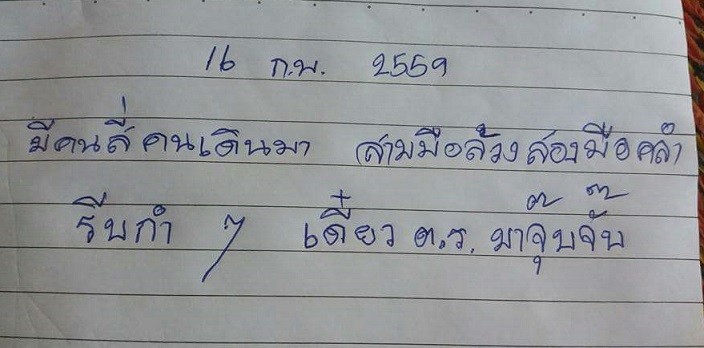 16 ก.พ. 2559
มีคนสี่คนเดินมา สามมือล้วงสองมือคลำ
รีบกำ ๆ เดี๋ยว ต.ร. มาจุ๊บจั๊บ